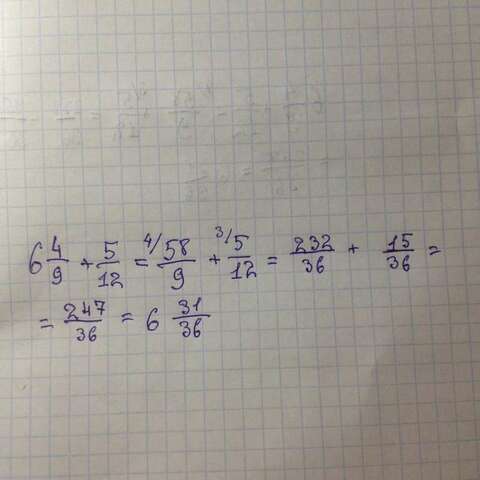 6 4/9 + 5/12 = ⁴/58/9 + ³/5/12 = 232/36 + 15/36 =
= 247/36 = 6 31/36